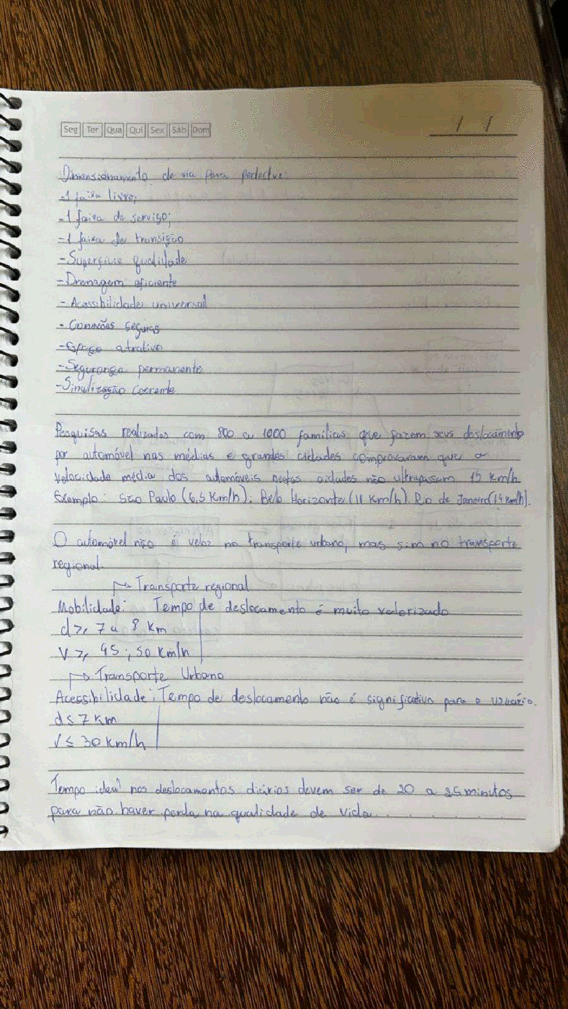 Seg Ter Qua Qui Sex Sáb Dom
/ /
Dimensionamento de via para pedestre:
-1 faixa livre;
-1 faixa de serviço;
-1 faixa de transição
-Superfície qualidade
-Drenagem eficiente
-Acessibilidade universal
-Conexões seguras
-Espaço atrativo
-Segurança permanente
-Sinalização coerente
Pesquisas realizadas com 800 a 1000 famílias que fazem seus deslocamento
por automóvel nas médias e grandes cidades comprovaram que a
velocidade média dos automóveis nestas cidades não ultrapassam 15 km/h.
Exemplo: São Paulo (6,5 km/h); Belo Horizonte (11 km/h) Rio de Janeiro (14 km/h).
O automóvel não é veloz no transporte urbano, mas sim no transporte
regional.
↱ Transporte regional
Mobilidade: Tempo de deslocamento é muito valorizado
d ≥ 7 a 8 km
V ≥ 45; 50 km/h
↱ Transporte Urbano
Acessibilidade: Tempo de deslocamento não é significativo para o usuário.
d ≤ 7 km
V ≤ 30 km/h
Tempo ideal nos deslocamentos diários devem ser de 20 a 25 minutos
para não haver perda na qualidade de vida.